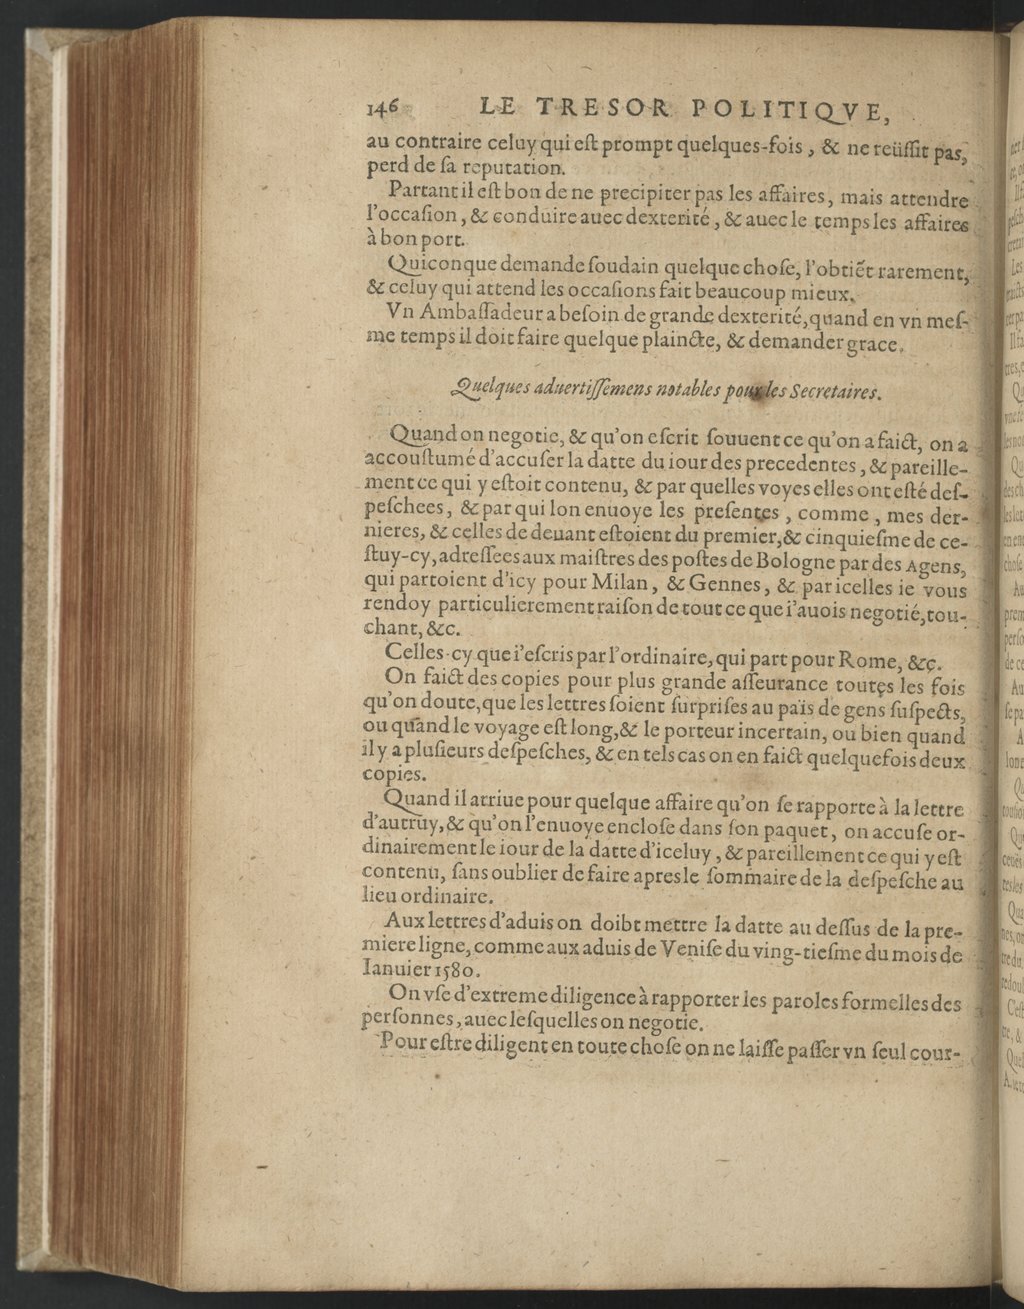 146 LE TRESOR POLITIQVE,
au contraire celuy qui eſt prompt quelques-fois, & ne reüſſit pas,
perd de ſa reputation.
Partant il eſt bon de ne precipiter pas les affaires, mais attendre
l'occaſion, & conduire auec dexterité, & auec le temps les affaires
à bon port.
Quiconque demande ſoudain quelque choſe, l'obtiẽt rarement,
& celuy qui attend les occaſions fait beaucoup mieux.
Vn Ambaſſadeur a beſoin de grande dexterité, quand en vn meſ-
me temps il doit faire quelque plaincte, & demander grace.
Quelques aduertiſſemens notables pour les Secretaires.
Quand on negotie, & qu'on eſcrit ſouuent ce qu'on a faict, on a
accouſtumé d'accuſer la datte du iour des precedentes, & pareille-
ment ce qui y eſtoit contenu, & par quelles voyes elles ont eſté deſ-
peſchees, & par qui lon enuoye les preſentes, comme, mes der-
nieres, & celles de deuant eſtoient du premier, & cinquieſme de ce-
ſtuy-cy, adreſſees aux maiſtres des poſtes de Bologne par des Agens,
qui partoient d'icy pour Milan, & Gennes, & par icelles ie vous
rendoy particulierement raiſon de tout ce que i'auois negotié, tou-
chant, &c.
Celles-cy que i'eſcris par l'ordinaire, qui part pour Rome, &c.
On faict des copies pour plus grande aſſeurance toutes les fois
qu'on doute, que les lettres ſoient ſurpriſes au païs de gens ſuſpects,
ou quand le voyage eſt long, & le porteur incertain, ou bien quand
il y a pluſieurs deſpeſches, & en tels cas on en faict quelquefois deux
copies.
Quand il arriue pour quelque affaire qu'on ſe rapporte à la lettre
d'autruy, & qu'on l'enuoye encloſe dans ſon paquet, on accuſe or-
dinairement le iour de la datte d'iceluy, & pareillement ce qui y eſt
contenu, ſans oublier de faire apres le ſommaire de la deſpeſche au
lieu ordinaire.
Aux lettres d'aduis on doibt mettre la datte au deſſus de la pre-
miere ligne, comme aux aduis de Veniſe du ving-tieſme du mois de
Ianuier 1580.
On vſe d'extreme diligence à rapporter les paroles formelles des
perſonnes, auec leſquelles on negotie.
Pour eſtre diligent en toute choſe on ne laiſſe paſſer vn ſeul cour-